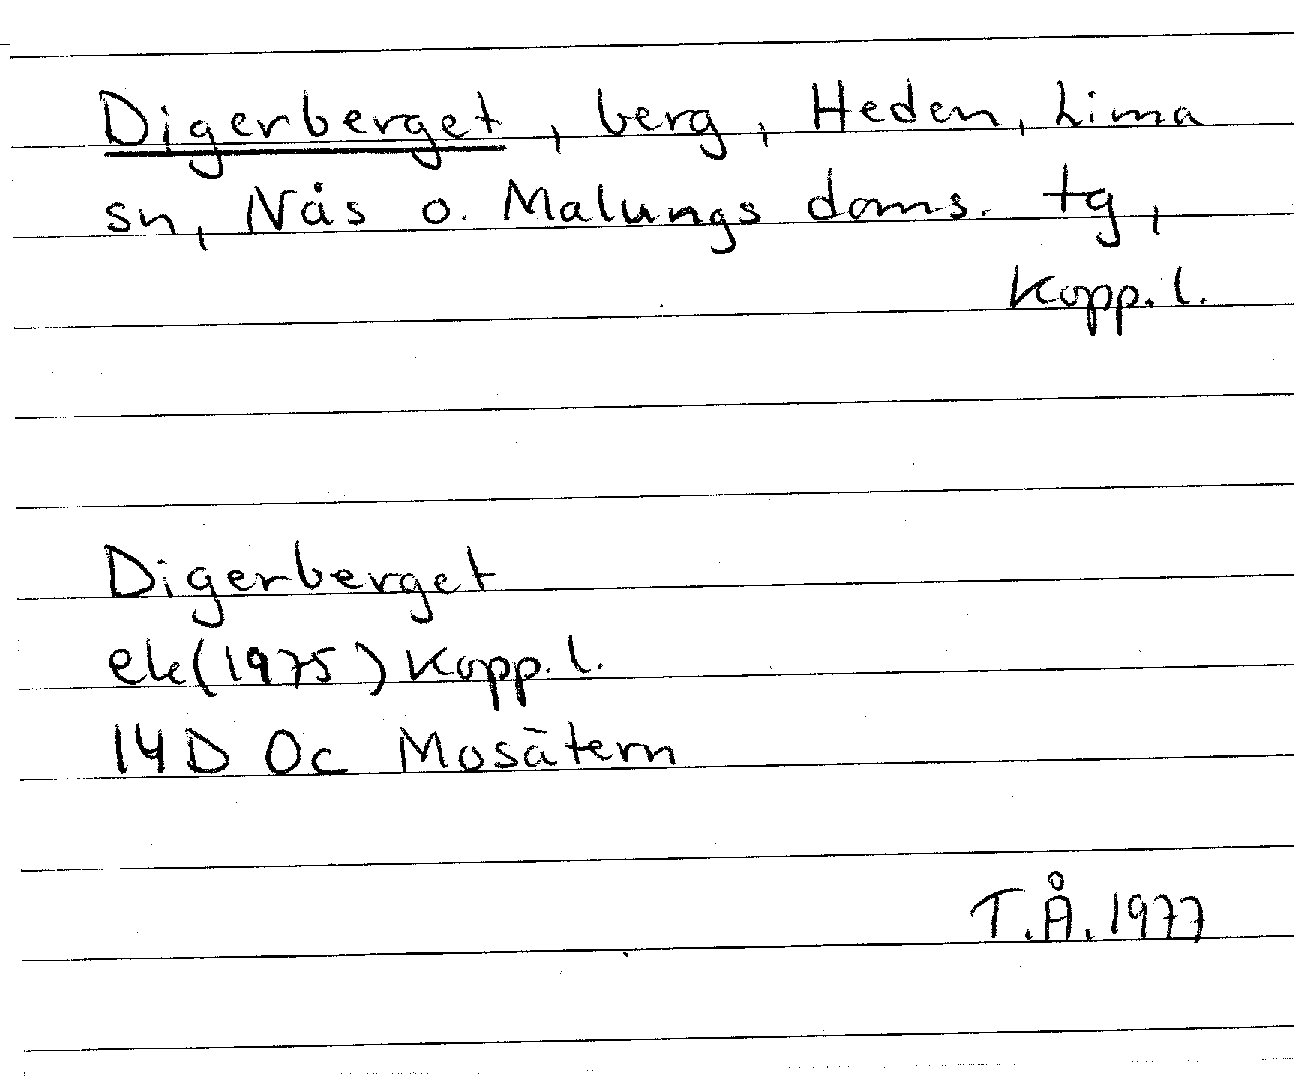 Digerberget, berg, Heden, Lima
sn, Nås o. Malungs doms. tg,
Kopp. l.
Digerberget
ek(1975) Kopp. l.
14D 0c Mosätern
T.Å. 1977